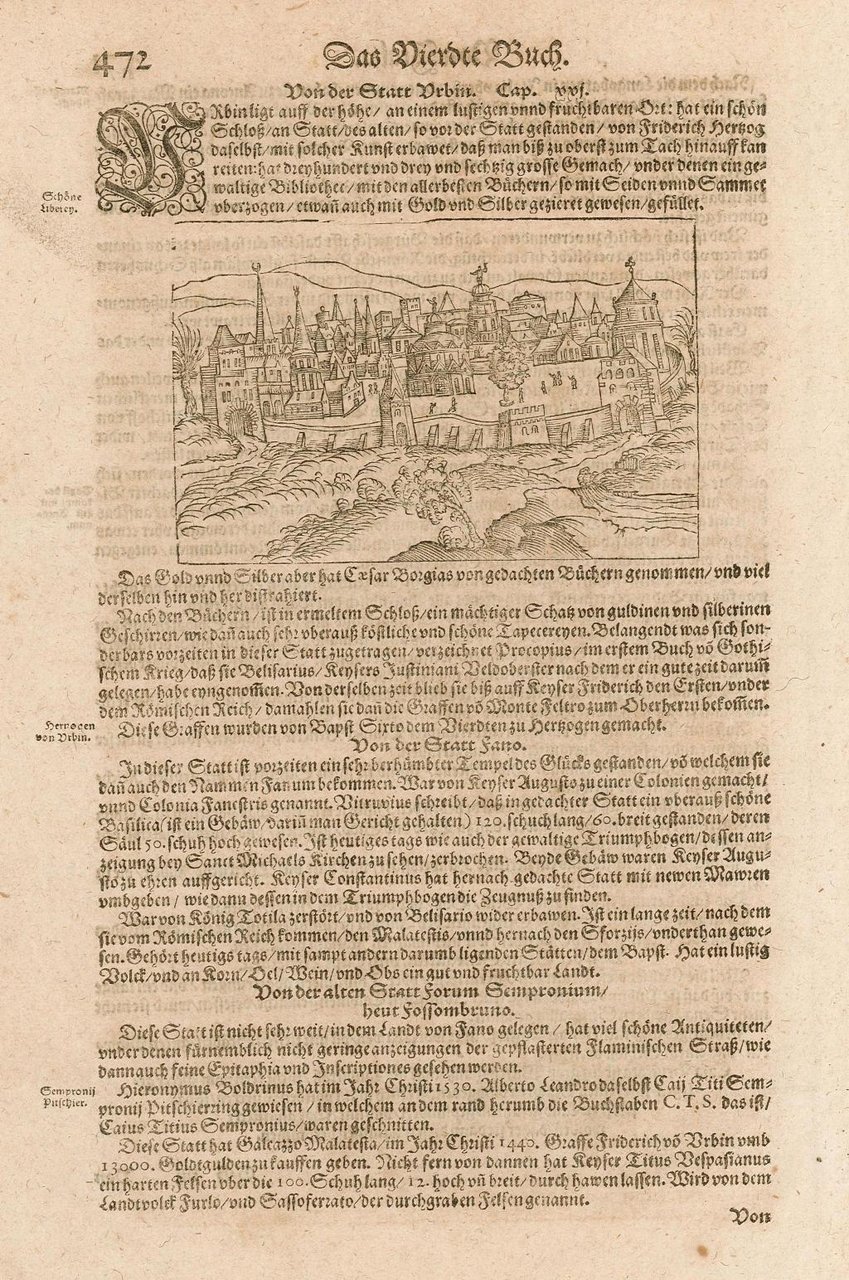 472
Das Vierdte Buch.
Von der Statt Vrbin. Cap. xxj.
VRbin ligt auff der höhe/ an einem lustigen vnnd fruchtbaren Ort: hat ein schön
Schloß/ an Statt/ des alten/ so vor der Statt gestanden/ von Friderich Hertzog
daselbst/ mit solcher Kunst erbawet/ daß man biß zu oberst zum Tach hinauff kan
reiten: hat dreyhundert vnd drey vnd sechtzig grosse Gemach/ vnder denen ein ge-
waltige Bibliothec/ mit den allerbesten Büchern/ so mit Seiden vnnd Sammet
vberzogen/ etwañ auch mit Gold vnd Silber gezieret gewesen/ gefüllet.
Schöne
Liberey.
Das Gold vnnd Silber aber hat Cæsar Borgias von gedachten Büchern genommen/ vnd viel
derselben hin vnd her distrahiert.
Nach den Büchern/ ist in ermeltem Schloß/ ein mächtiger Schatz von guldinen vnd silberinen
Geschirren/ wie dañ auch sehr vberauß köstliche vnd schöne Tapecereyen. Belangendt was sich son-
derbars vorzeiten in dieser Statt zugetragen/ verzeichnet Procopius/ im erstem Buch võ Gothi-
schem Krieg/ daß sie Belisarius/ Keysers Justiniani Veldoberster nach dem er ein gute zeit darum̃
gelegen/ habe eyngenom̃en. Von derselben zeit blieb sie biß auff Keyser Friderich den Ersten/ vnder
dem Römischen Reich/ damahlen sie dañ die Graffen võ Monte Feltro zum Oberherrn bekom̃en.
Diese Graffen wurden von Bapst Sixto dem Vierdten zu Hertzogen gemacht.
Hertzogen
von Vrbin.
Von der Statt Fano.
In dieser Statt ist vorzeiten ein sehr berhümbter Tempel des Glücks gestanden/ võ welchem sie
dañ auch den Nammen Fanum bekommen. War von Keyser Augusto zu einer Colonien gemacht/
vnnd Colonia Fanestris genannt. Vitruvius schreibt/ daß in gedachter Statt ein vberauß schöne
Basilica (ist ein Gebäw/ dariñ man Gericht gehalten) 120. schuch lang/ 60. breit gestanden/ deren
Säul 50. schuh hoch gewesen. Ist heutiges tags wie auch der gewaltige Triumphbogen/ dessen an-
zeigung bey Sanct Michaels Kirchen zu sehen/ zerbrochen. Beyde Gebäw waren Keyser Augu-
sto zu ehren auffgericht. Keyser Constantinus hat hernach gedachte Statt mit newen Mawren
vmbgeben/ wie dann dessen in dem Triumphbogen die Zeugnuß zu finden.
War von König Totila zerstört/ vnd von Belisario wider erbawen. Ist ein lange zeit/ nach dem
sie vom Römischen Reich kommen/ den Malatestis/ vnnd hernach den Sforzijs/ vnderthan gewe-
sen. Gehört heutigs tags/ mit sampt andern darumb ligenden Stätten/ dem Bapst. Hat ein lustig
Volck/ vnd an Korn/ Oel/ Wein/ vnd Obs ein gut vnd fruchtbar Landt.
Von der alten Statt Forum Sempronium/
heut Fossombruno.
Diese Statt ist nicht sehr weit/ in dem Landt von Fano gelegen/ hat viel schöne Antiquiteten/
vnder denen fürnemblich nicht geringe anzeigungen der gepflasterten Flaminischen Straß/ wie
dann auch feine Epitaphia vnd Inscriptiones gesehen werden.
Hieronymus Boldrinus hat im Jahr Christi 1530. Alberto Leandro daselbst Caij Titi Sem-
pronij Pitschierring gewiesen/ in welchem an dem rand herumb die Buchstaben C. T. S. das ist/
Caius Titius Sempronius/ waren geschnitten.
Sempronij
Pitschier.
Diese Statt hat Galeazzo Malatesta/ im Jahr Christi 1440. Graffe Friderich võ Vrbin vmb
13000. Goldtgulden zu kauffen geben. Nicht fern von dannen hat Keyser Titus Vespasianus
ein harten Felsen vber die 100. Schuh lang/ 12. hoch vñ breit/ durch hawen lassen. Wird von dem
Landtvolck Furlo/ vnd Sassoferrato/ der durchgraben Felsen genannt.
Von